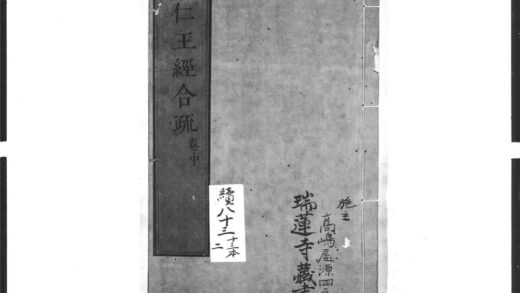 仁王經合疏 卷中
續八十三 十三本
二
施主
高嶋屋源四
瑞蓮寺藏書